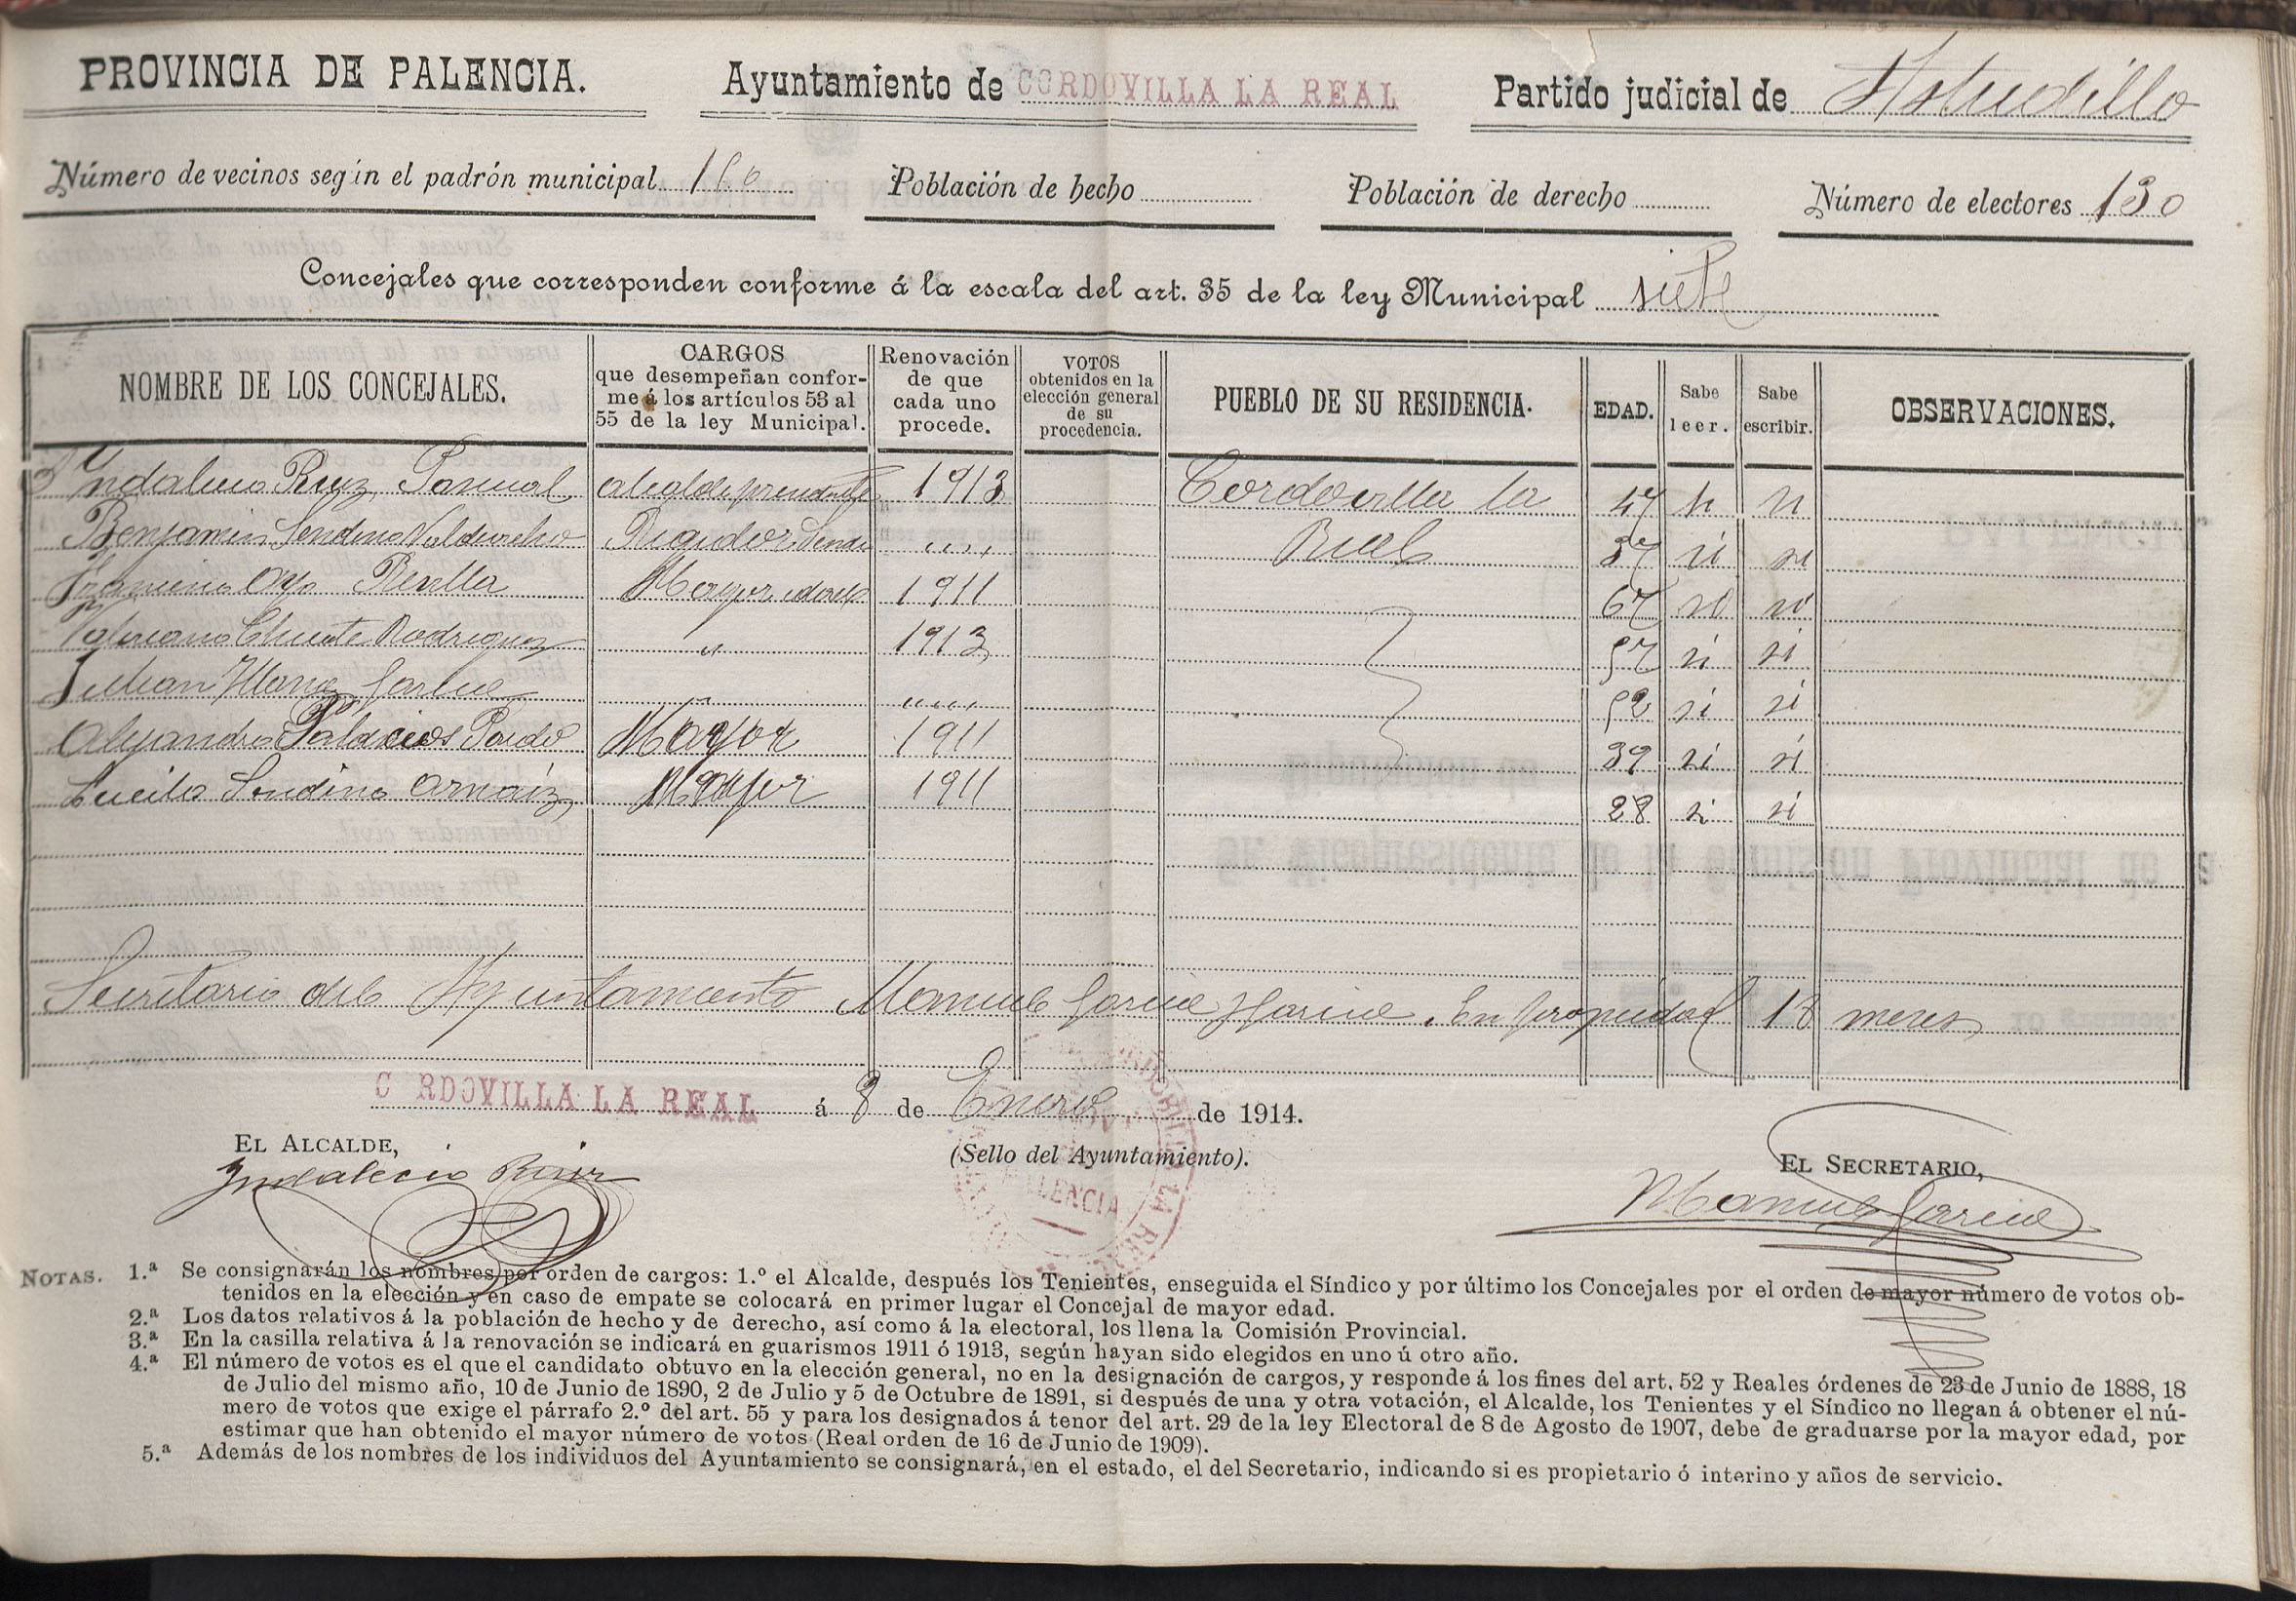 PROVINCIA DE PALENCIA. Ayuntamiento de CORDOVILLA LA REAL Partido judicial de Astudillo
Número de vecinos según el padrón municipal Población de hecho Población de derecho Número de electores 130
Concejales que corresponden conforme á la escala del art. 35 de la ley Municipal siete
NOMBRE DE LOS CONCEJALES. CARGOS que desempeñan conforme á los artículos 53 al 55 de la ley Municipal. Renovación de que cada uno procede. VOTOS obtenidos en la elección general de su procedencia. PUEBLO DE SU RESIDENCIA. EDAD. Sabe leer. Sabe escribir. OBSERVACIONES.
Yndalecio Ruiz Pascual alcalde presidente 1913 Cordovilla la 47 si si
Benjamin Sendino Regidor " " " " Real 37 si si
Oyo Revilla Mayor edad 1911 67 si si
Valeriano Rodriguez " 1913 57 si si
Julian Garcia " " " " " 52 si si
Alejandro Palacios Pardo Mayor 1911 39 si si
Lucilo Sendino Arnaiz Mayor 1911 28 si si
Secretario del Ayuntamiento Manuel Garcia Garcia. En propiedad 18 meses
C RDOVILLA LA REAL á 8 de Enero de 1914.
EL ALCALDE, (Sello del Ayuntamiento). EL SECRETARIO,
Yndalecio Ruiz Manuel Garcia
PALENCIA
NOTAS. 1.ª Se consignarán los nombres por orden de cargos: 1.º el Alcalde, después los Tenientes, enseguida el Síndico y por último los Concejales por el orden de mayor número de votos ob-
tenidos en la elección y en caso de empate se colocará en primer lugar el Concejal de mayor edad.
2.ª Los datos relativos á la población de hecho y de derecho, así como á la electoral, los llena la Comisión Provincial.
3.ª En la casilla relativa á la renovación se indicará en guarismos 1911 ó 1913, según hayan sido elegidos en uno ú otro año.
4.ª El número de votos es el que el candidato obtuvo en la elección general, no en la designación de cargos, y responde á los fines del art. 52 y Reales órdenes de 23 de Junio de 1888, 18
de Julio del mismo año, 10 de Junio de 1890, 2 de Julio y 5 de Octubre de 1891, si después de una y otra votación, el Alcalde, los Tenientes y el Síndico no llegan á obtener el nú-
mero de votos que exige el párrafo 2.º del art. 55 y para los designados á tenor del art. 29 de la ley Electoral de 8 de Agosto de 1907, debe de graduarse por la mayor edad, por
estimar que han obtenido el mayor número de votos (Real orden de 16 de Junio de 1909).
5.ª Además de los nombres de los individuos del Ayuntamiento se consignará, en el estado, el del Secretario, indicando si es propietario ó interino y años de servicio.